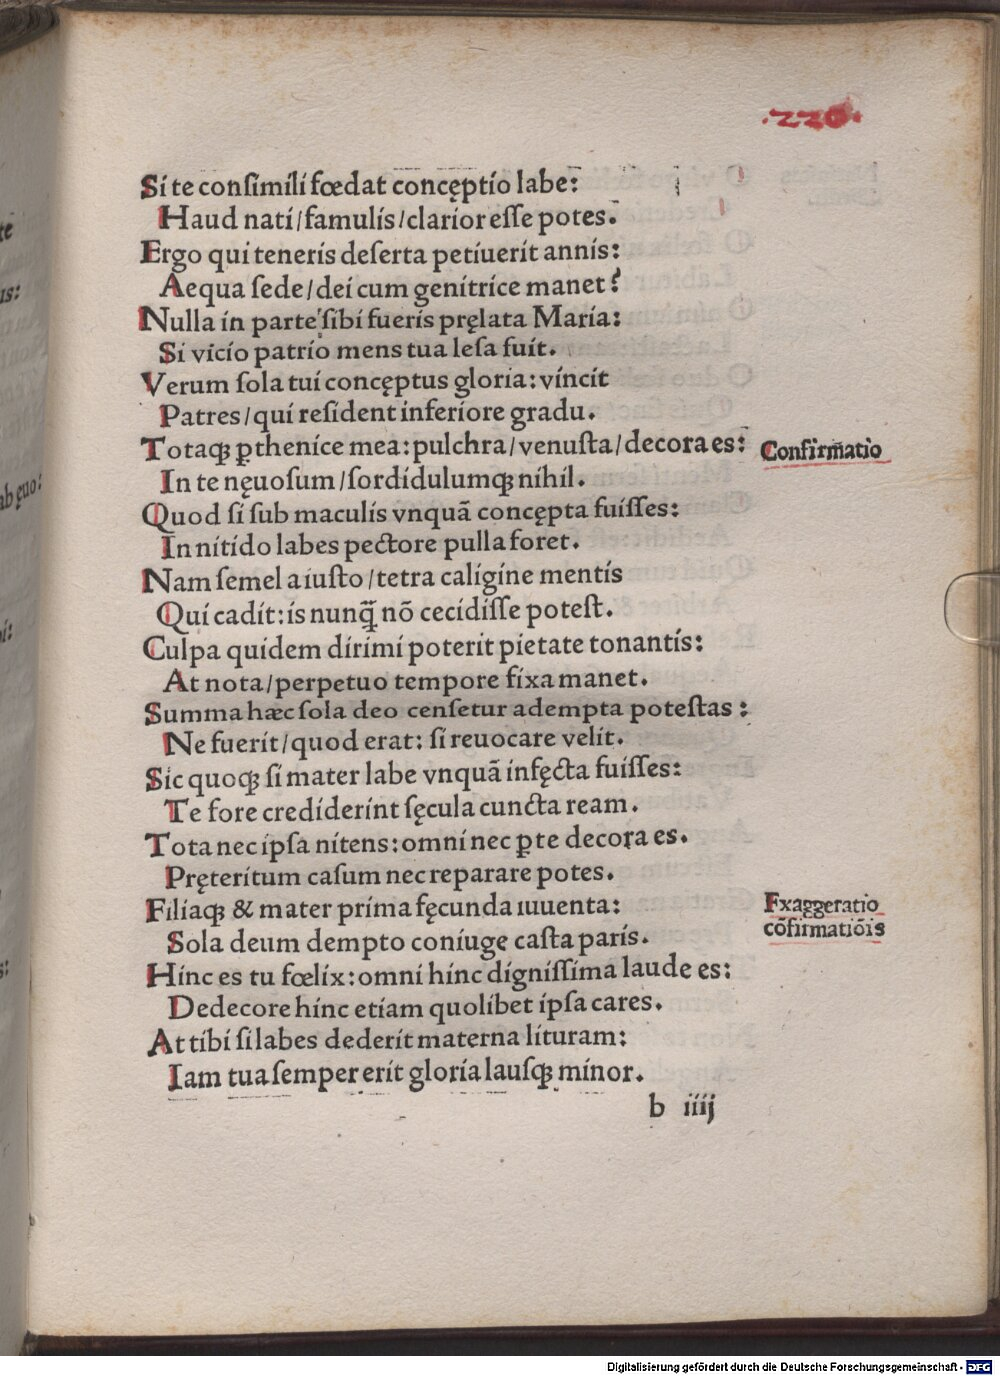 .220.
Si te consimili fœdat concęptio labe:
Haud nati/famulis/clarior esse potes.
Ergo qui teneris deserta petiuerit annis:
Aequa sede/dei cum genitrice manet?
Nulla in parte sibi fueris pręlata Maria:
Si vicio patrio mens tua lesa fuit.
Verum sola tui concęptus gloria: vincit
Patres/qui resident inferiore gradu.
Totaqꝫ ꝑthenice mea: pulchra/venusta/decora es:
Confirmatio
In te nęuosum/sordidulumqꝫ nihil.
Quod si sub maculis vnquā concępta fuisses:
In nitido labes pectore pulla foret.
Nam semel a iusto/tetra caligine mentis
Qui cadit: is nunq̄ nō cecidisse potest.
Culpa quidem dirimi poterit pietate tonantis:
At nota/perpetuo tempore fixa manet.
Summa hæc sola deo censetur adempta potestas:
Ne fuerit/quod erat: si reuocare velit.
Sic quoqꝫ si mater labe vnquā infęcta fuisses:
Te fore crediderint sęcula cuncta ream.
Tota nec ipsa nitens: omni nec ꝑte decora es.
Pręteritum casum nec reparare potes.
Filiaqꝫ & mater prima fęcunda iuuenta:
Fxaggeratio
cōfirmatiōis
Sola deum dempto coniuge casta paris.
Hinc es tu fœlix: omni hinc dignissima laude es:
Dedecore hinc etiam quolibet ipsa cares.
At tibi si labes dederit materna lituram:
Iam tua semper erit gloria lausqꝫ minor.
b iiij
te
us:
ab ęuo:
Digitalisierung gefördert durch die Deutsche Forschungsgemeinschaft - DFG